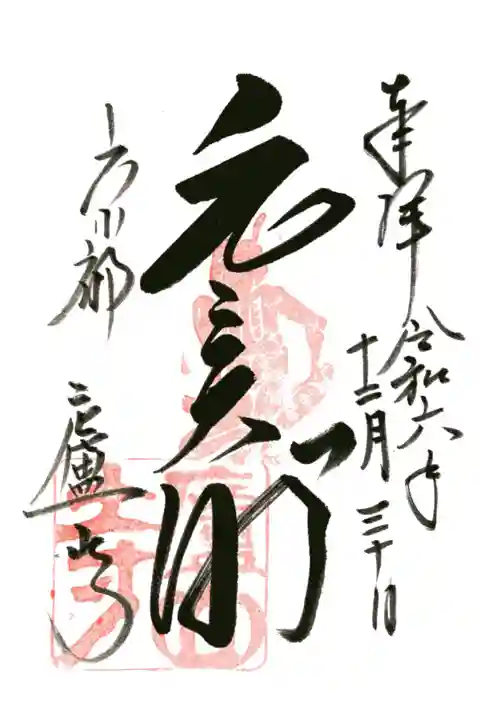 奉拝 令和六年
十二月三十日
元三大師
京都 廬山寺